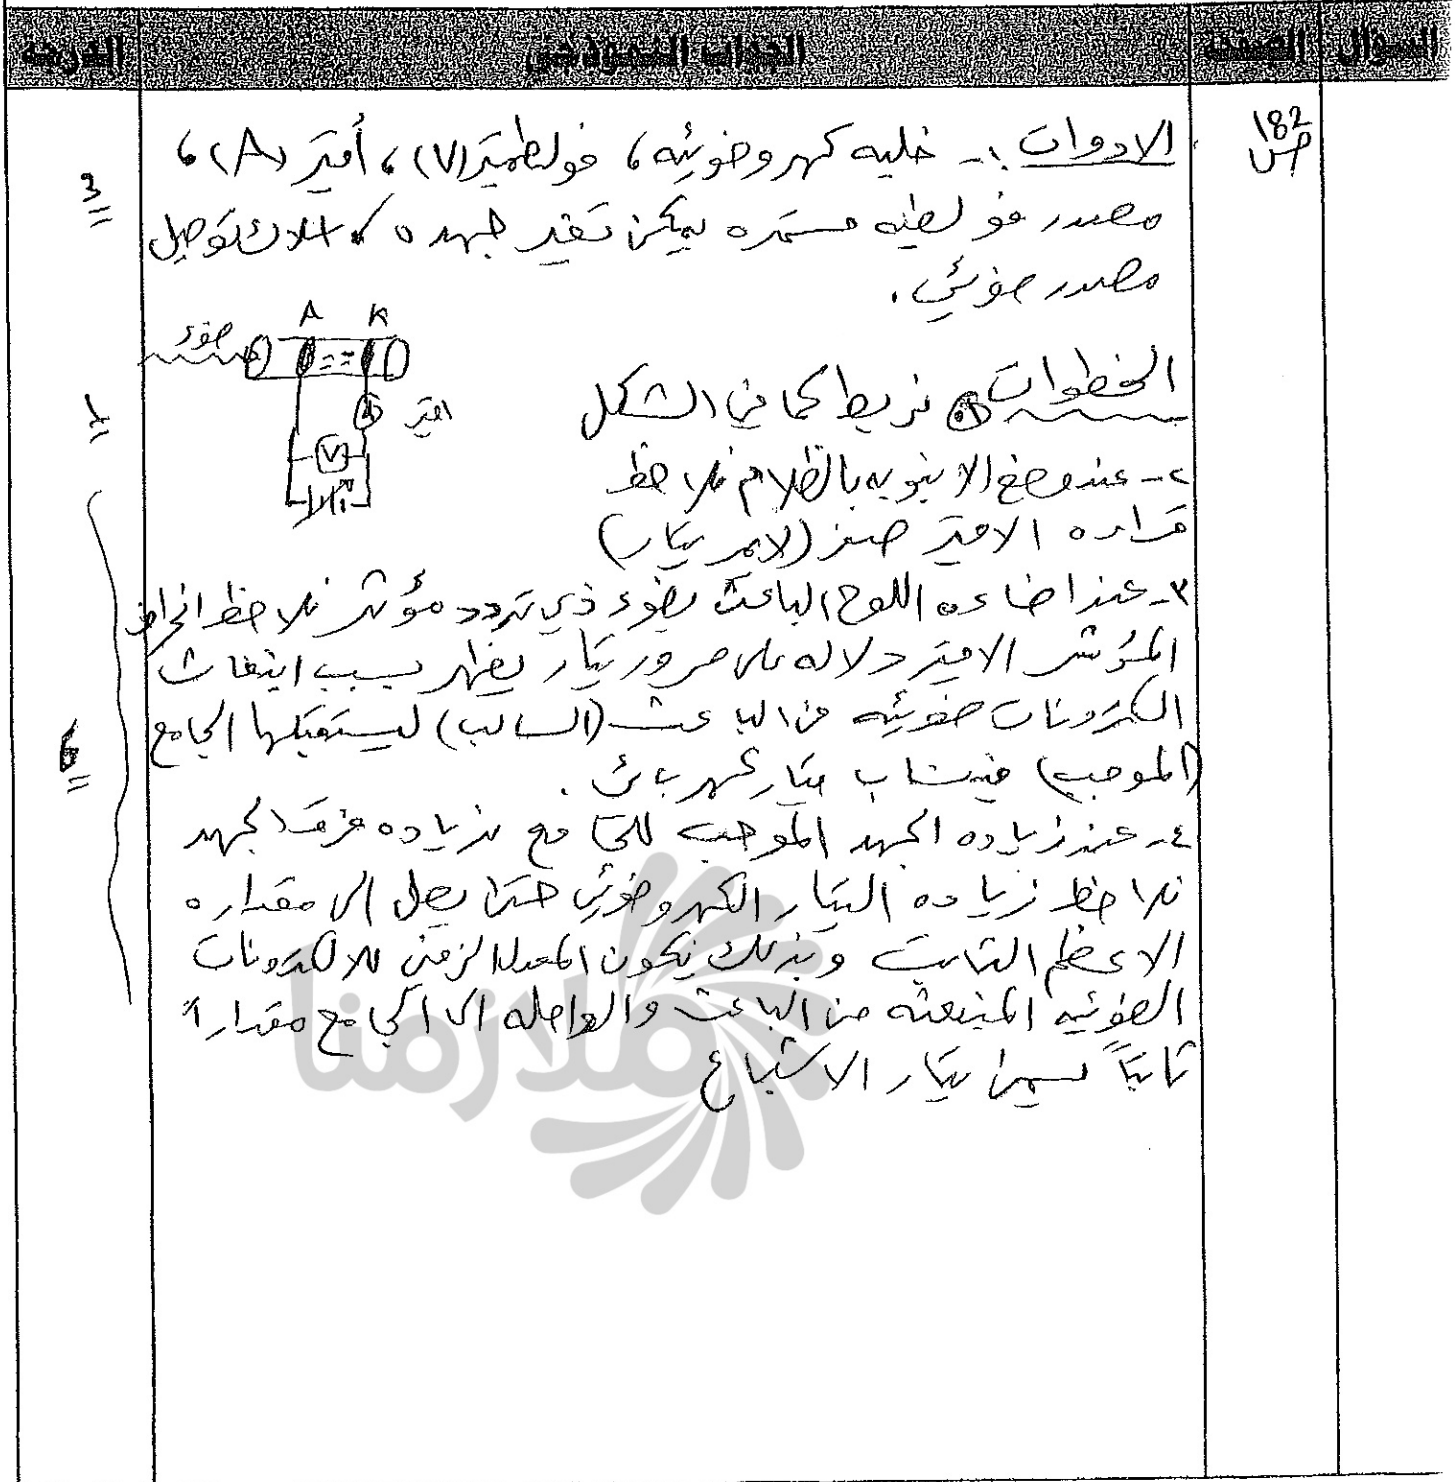 السؤال الصفحة الجواب النموذجي الدرجة
182
ص
الادوات :- خليه كهروضوئيه ، فولطميتر (V) ، أميتر (A) ،
مصدر فولطيه مستمره يمكن تغير جهده ، اسلاك توصيل
مصدر ضوئي .
3
ضوء A K
الخطوات ① نربط كما في الشكل
اميتر A
V
٢- عند وضع الانبوبه بالظلام نلاحظ
قراءه الاميتر صفر (لايمر تيار)
٣- عند اضاءه اللوح الباعث بضوء ذي تردد مؤثر نلاحظ انحراف
المؤشر الاميتر دلاله على مرور تيار يظهر بسبب انبعاث
الكترونات ضوئيه من الباعث (السالب) ليستقبلها الجامع
(الموجب) فينساب تيار كهربائي .
6
٤- عند زياده الجهد الموجب للجامع بزياده فرق الجهد
نلاحظ زياده التيار الكهروضوئي حتى يصل الى مقداره
الاعظم الثابت وبذلك يكون المعدل الزمني للالكترونات
الضوئيه المنبعثه من الباعث والواصله الى الجامع مقداراً
ثابتاً يسمى تيار الاشباع
ملازمنا